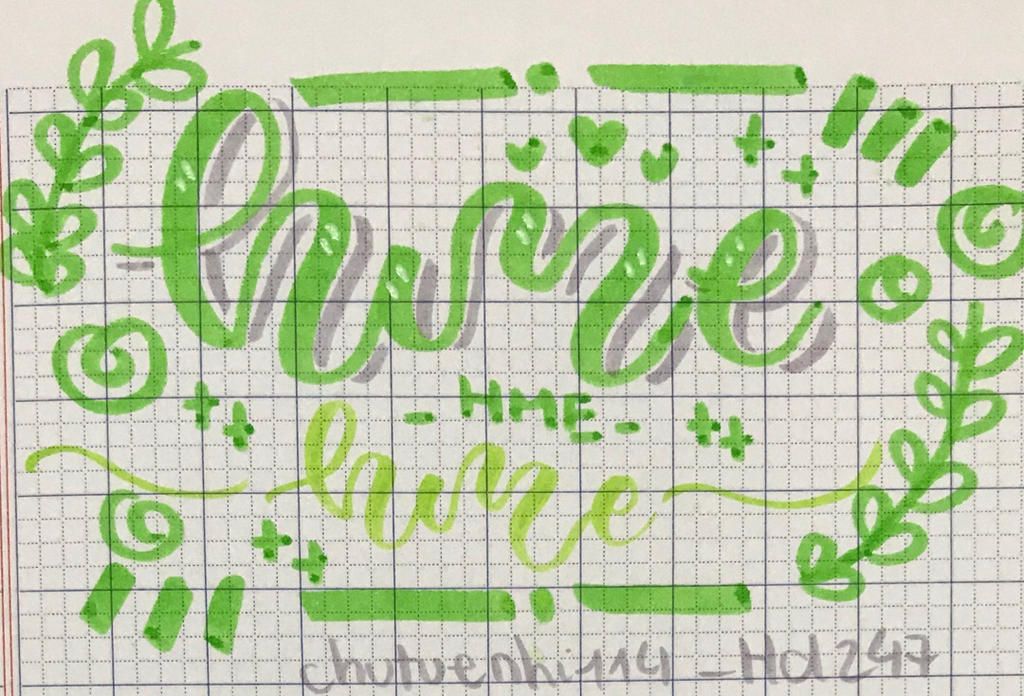 hme
- HME -
hme
chutuenhi114 _ Hd247